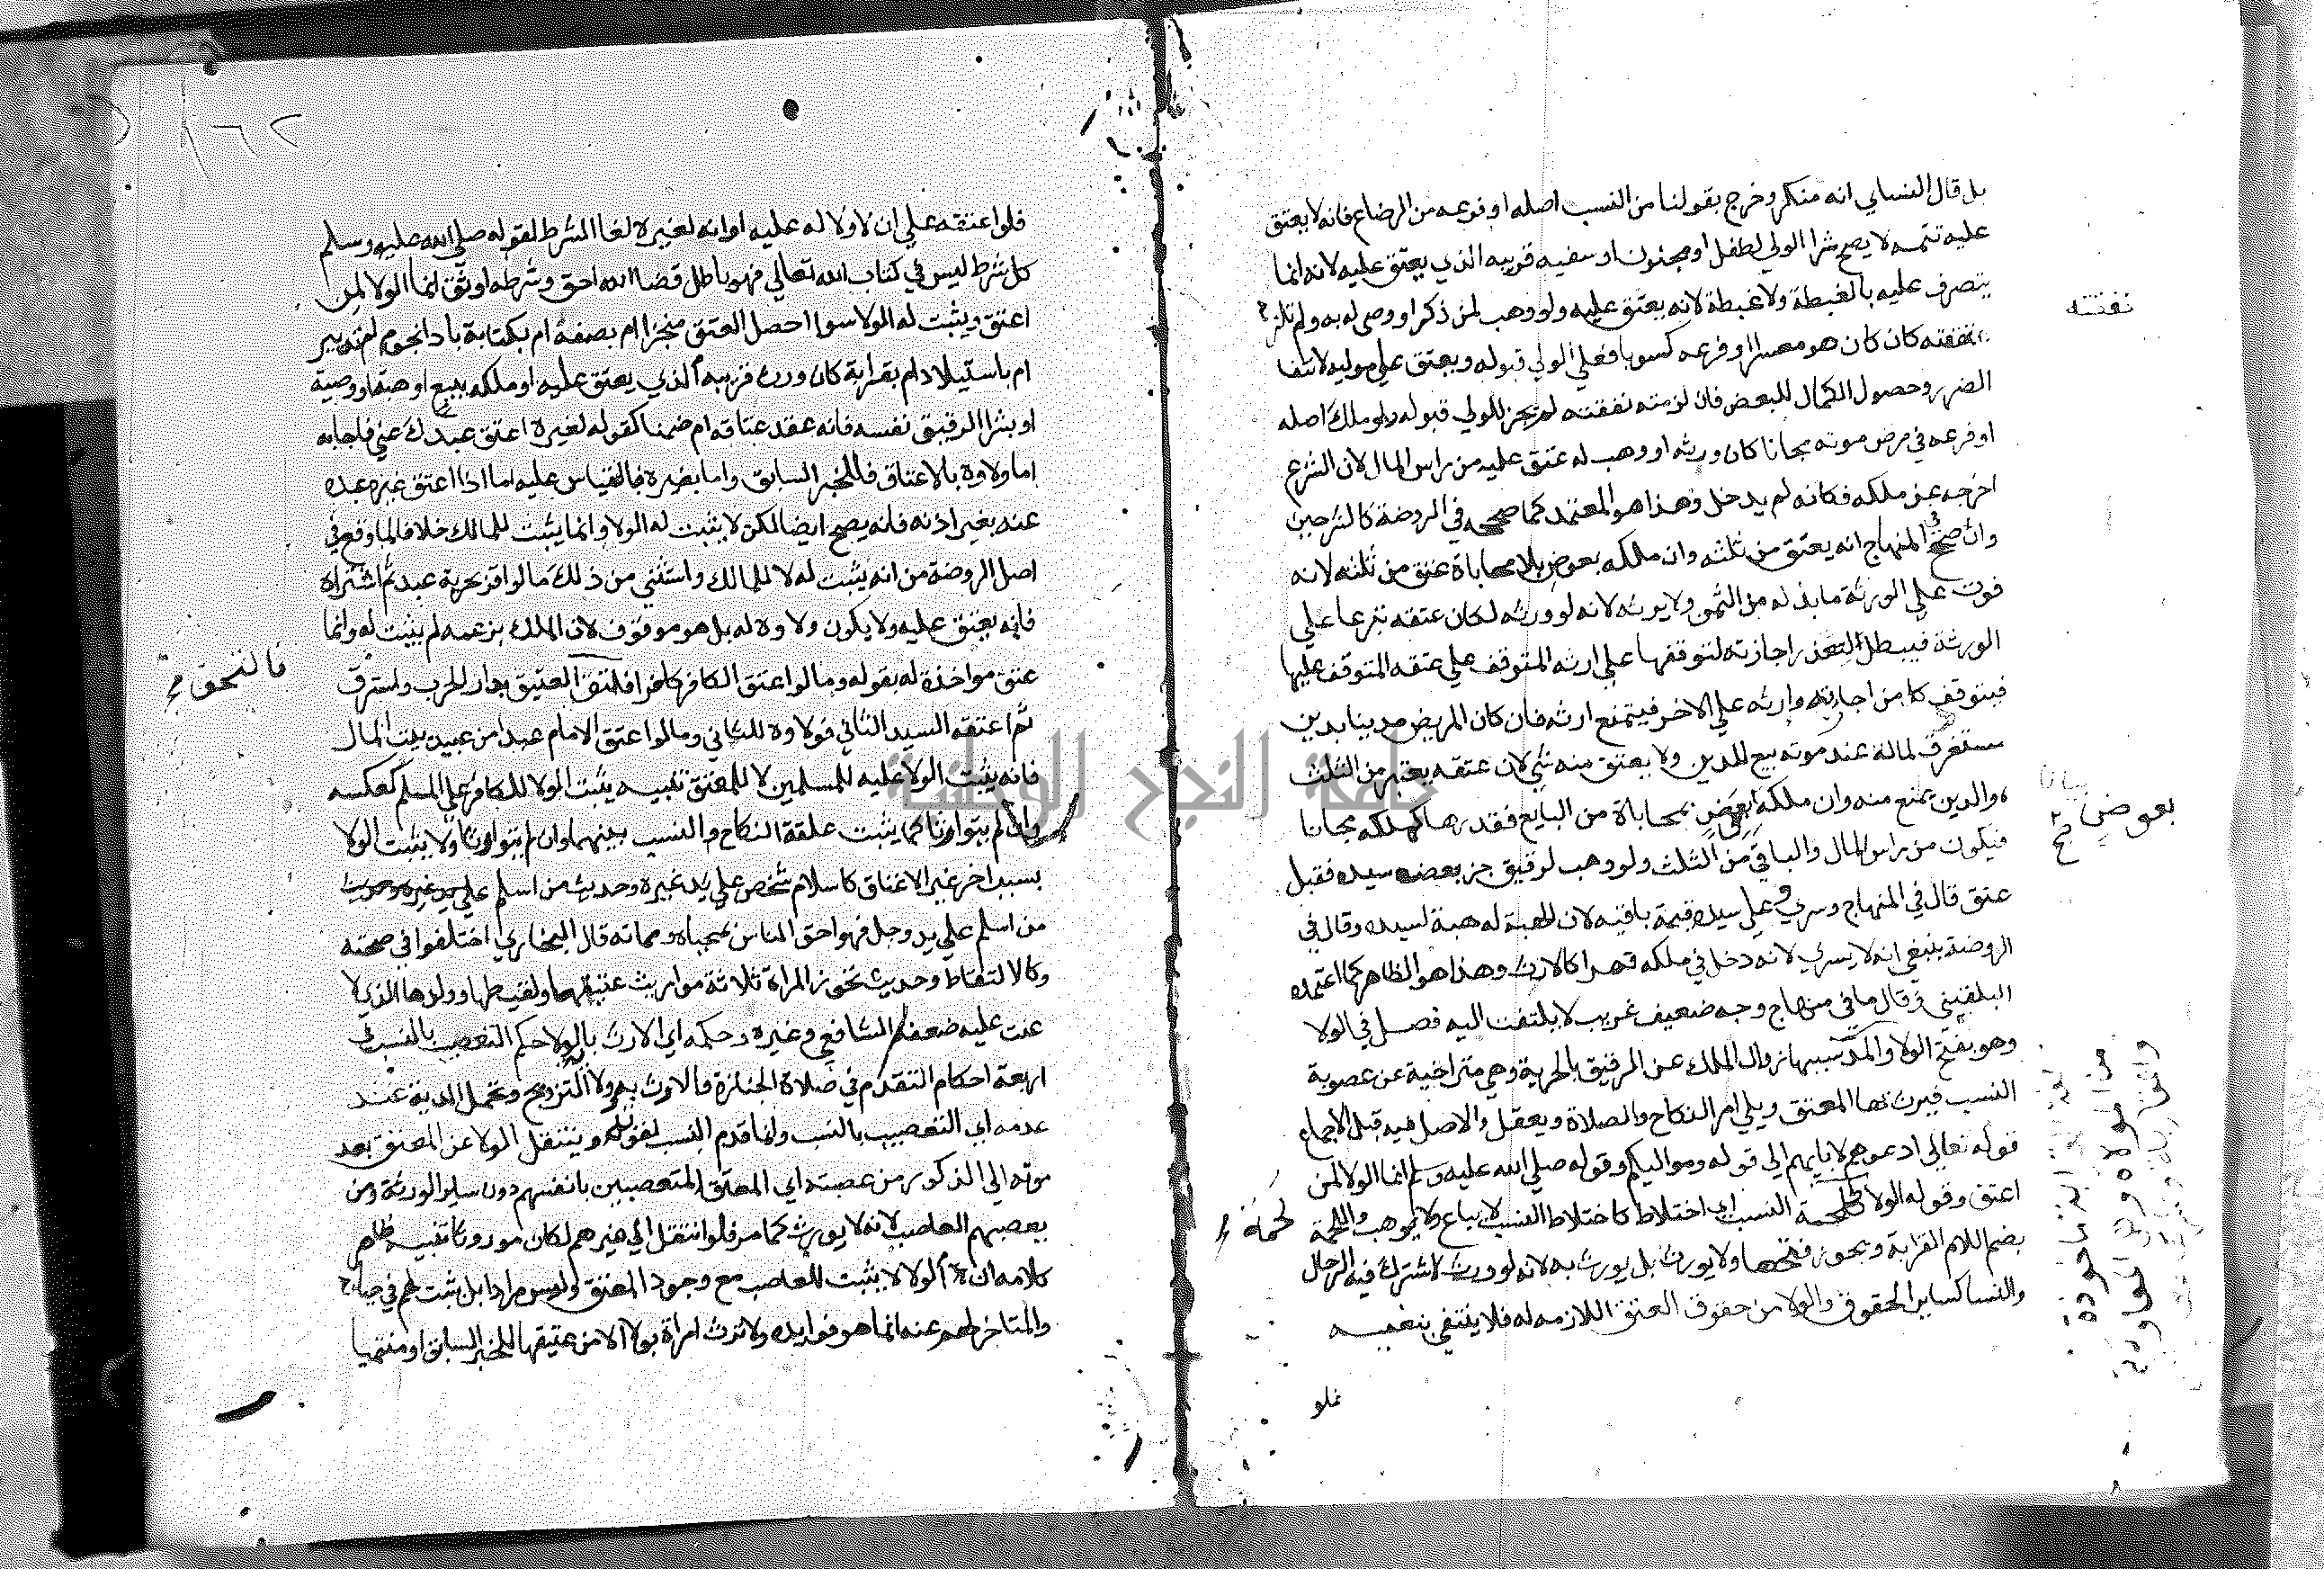 بل قال النساي انه منكر وخرج بقولنا من النسب اصله او فرعه من الرضاع فانه لا يعتق
عليه تتمه لا يصح شرا الولي لطفل او مجنون او سفيه قريبه الذي يعتق عليه لانه انما
يتصرف عليه بالغبطة ولا غبطة لانه يعتق عليه ولو وهب لمن ذكر او وصي له به ولم تلزمه
نفقته كان كان هو معسرا او فرعه كسوبا فعلي الولي قبوله ويعتق علي موليه لانتفا
الضرر وحصول الكمال للبعض فان لزمته نفقته لم يجز للولي قبوله ولو ملك اصله
او فرعه في مرض موته مجانا كان ورثه او وهب له عتق عليه من راس المال لان الشرع
اخرجه عن ملكه فكانه لم يدخل وهذا هو المعتمد كما صححه في الروضة كالشرحين
وان صحح في المنهاج انه يعتق من ثلثه وان ملكه بعوض بلا محاباة عتق من ثلثه لانه
فوت علي الورثة ما بذله من الثمن ولا يرثه لانه لو ورثه لكان عتقه تبرعا علي
الورثة فيبطل لتعذر اجازته لتوقفها علي ارثه المتوقف علي عتقه المتوقف عليها
فيتوقف كل من اجازته وارثه علي الاخر فيمتنع ارثه فان كان المريض مدينا بدين
مستغرق لماله عند موته بيع للدين ولا يعتق منه شي لان عتقه يعتبر من الثلث
والدين يمنع منه وان ملكه بعوض بمحاباة من البايع فقدرها كملكه مجانا
فيكون من راس المال والباقي من الثلث ولو وهب لرقيق جز بعض سيده فقبل
عتق قال في المنهاج وسري وعلي سيده قيمة باقيه لان الهبة له هبة لسيده وقال في
الروضة ينبغي انه لا يسري لانه دخل في ملكه قهرا كالارث وهذا هو الظاهر كما اعتمده
البلقيني وقال ما في منهاج وجه ضعيف غريب لا يلتفت اليه فصل في الولا
وهو بفتح الولا والمد سببها زوال الملك عن الرقيق بالحرية وهي متراخية عن عصوبة
النسب فيرث بها المعتق ويلي امر النكاح والصلاة ويعقل والاصل فيه قبل الاجماع
قوله تعالي ادعوهم لابايهم الي قوله ومواليكم وقوله صلي الله عليه وسلم انما الولا لمن
اعتق وقوله الولا لحمة كلحمة النسب اي اختلاط كاختلاط النسب لا يباع ولا يوهب واللحمة
بضم اللام القرابة ويجوز فتحها ولا يورث بل يورث به لانه لو ورث لاشترك فيه الرجال
والنسا كساير الحقوق والولا من حقوق العتق اللازمه له فلا ينتفي بنفيه
فلو
نفقته
بعوض
بيانا
لحمة
فلو اعتقه علي ان لا ولا له عليه او انه لغيره لغا الشرط لقوله صلي الله عليه وسلم
كل شرط ليس في كتاب الله تعالي فهو باطل قضا الله احق وشرطه اوثق انما الولا لمن
اعتق ويثبت له الولا سوا احصل العتق منجزا ام بصفة ام بكتابة بادا نجوم ام تدبير
ام باستيلاد ام بقرابة كان ورث قريبه الذي يعتق عليه او ملكه ببيع او هبة او وصية
او بشرا الرقيق نفسه فانه عقد عتاقه ام ضمنا كقوله لغيره اعتق عبدك عني فاجابه
اما ولاوه بالاعتاق فللخبر السابق واما بغيره فبالقياس عليه اما اذا اعتق غيره عبده
عنه بغير اذنه فانه يصح ايضا لكن لا يثبت له الولا وانما يثبت للمالك خلافا لما وقع في
اصل الروضة من انه يثبت له لا للمالك واستثني من ذلك ما لو اقر بحرية عبد ثم اشتراه
فانه يعتق عليه ولا يكون ولاوه له بل هو موقوف لان الملك بزعمه لم يثبت له وانما
عتق مواخذة له بقوله وما لو اعتق الكافر كافرا فلتحق العتيق بدار الحرب واسترق
ثم اعتقه السيد الثاني فولاوه للثاني وما لو اعتق الامام عبدا من عبيد بيت المال
فانه يثبت الولا عليه للمسلمين لا للمعتق تنبيه يثبت الولا للكافر علي المسلم كعكسه
وان لم يتوارثا كما يثبت علقة النكاح والنسب بينهما وان لم يتوارثا ولا يثبت الولا
بسبب اخر غير الاعتاق كاسلام شخص علي يد غيره وحديث من اسلم علي يد غيره وحديث
من اسلم علي يد رجل فهو احق الناس بمحياه ومماته قال البخاري اختلفوا في صحته
وكالالتقاط وحديث تحوز المراة ثلاثة مواريث عتيقها ولقيطها وولدها الذي لا
عنت عليه ضعفه الشافعي وغيره وحكمه اي الارث بالولا حكم التعصيب بالنسب في
اربعة احكام التقدم في صلاة الجنازة والارث به وولا التزويج وتحمل الدية عند
عدمه اي التعصيب بالنسب وانما قدم النسب لقوته وينتقل الولا عن المعتق بعد
موته الي الذكور من عصبته اي المعتق المتعصبين بانفسهم دون ساير الورثة ومن
يعصبهم العاصب لانه لا يورث كما مر فلو انتقل الي غيرهم لكان موروثا تنبيه ظاهر
كلامه ان الولا لا يثبت للعاصب مع وجود المعتق وليس مرادا بل يثبت لهم في حياته
والمتاخر لهم عنه انما هو فوايده ولا ترث امراة بولا الا من عتيقها للخبر السابق او منتميا
فالتحق